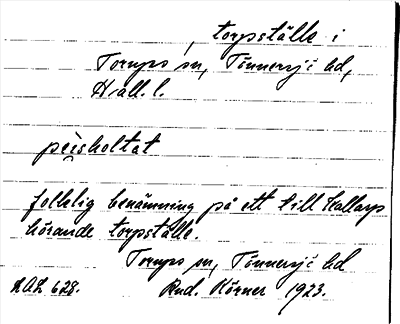 , torpställe i
Torups sn, Tönnersjö hd,
Hall. l.
peisholtat
folklig benämning på ett till Hallarp
hörande torpställe.
Torups sn, Tönnersjö hd
LAL 628. Rud. Körner 1923.